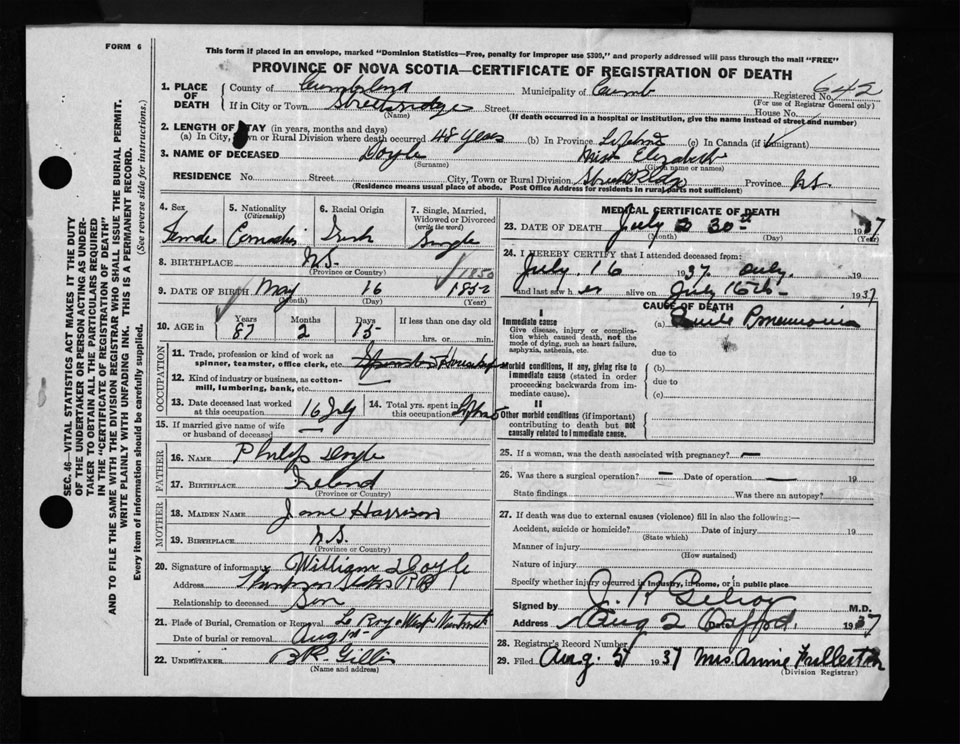 FORM 6
This form if placed in an envelope, marked "Dominion Statistics—Free, penalty for improper use $300," and properly addressed will pass through the mail "FREE"
PROVINCE OF NOVA SCOTIA—CERTIFICATE OF REGISTRATION OF DEATH
SEC. 46—VITAL STATISTICS ACT MAKES IT THE DUTY
OF THE UNDERTAKER OR PERSON ACTING AS UNDER-
TAKER TO OBTAIN ALL THE PARTICULARS REQUIRED
IN THE "CERTIFICATE OF REGISTRATION OF DEATH"
AND TO FILE THE SAME WITH THE DIVISION REGISTRAR WHO SHALL ISSUE THE BURIAL PERMIT.
WRITE PLAINLY WITH UNFADING INK. THIS IS A PERMANENT RECORD.
Every item of information should be carefully supplied. (See reverse side for instructions.)
1. PLACE OF DEATH County of Cumberland Municipality of Cumb Registered No. 642
(For use of Registrar General only)
If in City or Town Streets ridge Street House No.
(Name) (If death occurred in a hospital or institution, give the name instead of street and number)
2. LENGTH OF STAY (in years, months and days)
(a) In City, Town or Rural Division where death occurred 48 years (b) In Province Lifetime (c) In Canada (if immigrant)
3. NAME OF DECEASED Doyle Miss Elizabeth
(Surname) (Given name or names)
RESIDENCE No. Street City, Town or Rural Division Streets Ridge Province N.S.
(Residence means usual place of abode. Post Office Address for residents in rural parts not sufficient)
4. Sex Female
5. Nationality (Citizenship) Canadian
6. Racial Origin Irish
7. Single, Married, Widowed or Divorced (write the word) Single
8. BIRTHPLACE N.S.
(Province or Country)
1850
9. DATE OF BIRTH May 16 1850
(Month) (Day) (Year)
10. AGE in Years 87 Months 2 Days 15 If less than one day old hrs. or min.
OCCUPATION
11. Trade, profession or kind of work as spinner, teamster, office clerk, etc.
12. Kind of industry or business, as cotton-mill, lumbering, bank, etc.
13. Date deceased last worked at this occupation 16 July
14. Total yrs. spent in this occupation
15. If married give name of wife or husband of deceased —
FATHER
16. NAME Philip Doyle
17. BIRTHPLACE Ireland
(Province or Country)
MOTHER
18. MAIDEN NAME Jane Harrison
19. BIRTHPLACE N.S.
(Province or Country)
20. Signature of informant William Doyle
Address Thompson Station RR 1
Relationship to deceased Son
21. Place of Burial, Cremation or Removal
Date of burial or removal Aug 1st
22. UNDERTAKER B R Gillis
(Name and address)
MEDICAL CERTIFICATE OF DEATH
23. DATE OF DEATH July 30th 1937
(Month) (Day) (Year)
24. I HEREBY CERTIFY that I attended deceased from:
July. 16 1937. only. 19
and last saw her alive on July 16th 1937
CAUSE OF DEATH
I
Immediate cause
Give disease, injury or complication which caused death, not the mode of dying, such as heart failure, asphyxia, asthenia, etc.
(a) Senile Pneumonia
due to
Morbid conditions, if any, giving rise to immediate cause (stated in order proceeding backwards from immediate cause).
(b)
due to
(c)
II
Other morbid conditions (if important) contributing to death but not causally related to immediate cause.
25. If a woman, was the death associated with pregnancy? —
26. Was there a surgical operation? — Date of operation — 19
State findings Was there an autopsy?
27. If death was due to external causes (violence) fill in also the following:—
Accident, suicide or homicide? Date of injury 19
(State which)
Manner of injury
(How sustained)
Nature of injury
Specify whether injury occurred in industry, in home, or in public place
Signed by J. R. Gilroy M.D.
Address Aug 2 Oxford. 1937
28. Registrar's Record Number
29. Filed Aug. 5 1937 Mrs. Annie Fullerton
(Division Registrar)